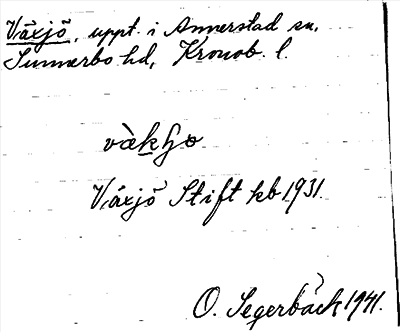 Växjö, uppt. i Annerstad sn,
Sunnerbo hd, Kronob. l.
Växjö Stift kb 1931.
O. Segerbäck 1941.